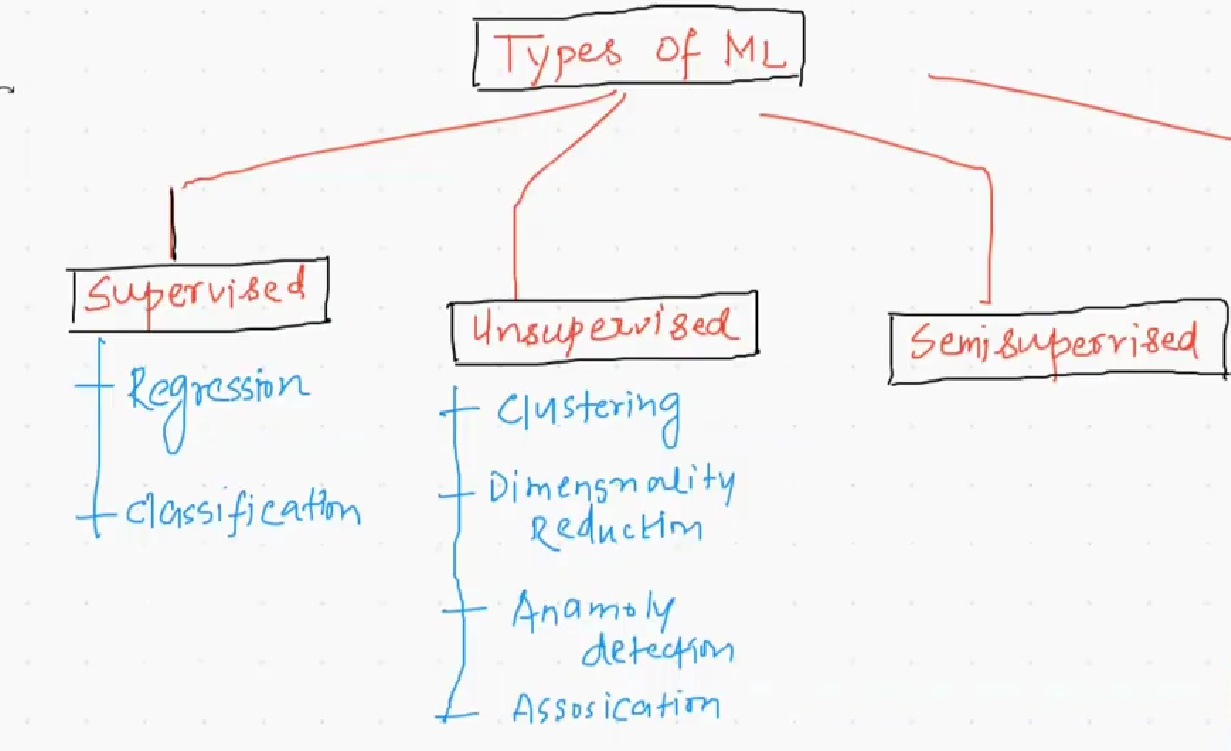 Types of ML
Supervised
Regression
Classification
Unsupervised
Clustering
Dimensnality
Reduction
Anamoly
detection
Assosication
Semisupervised